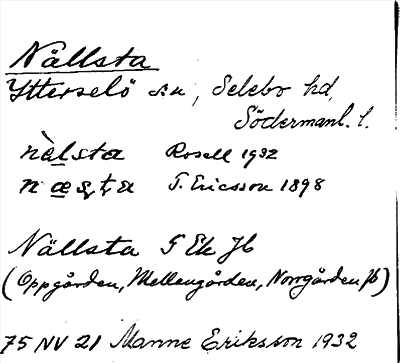 Nällsta
Ytterselö sn, Selebo hd,
Södermanl. l.
nèlsta Rosell 1932
T. Ericsson 1898
Nällsta 5 Eh Jb
(Oppgården, Mellangården, Norrgården Jb)
75 NV 21 Manne Eriksson 1932